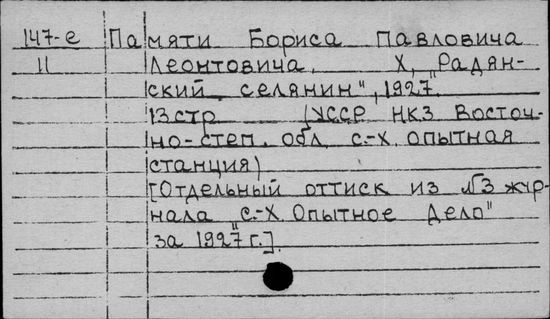 147-е Памяти Бориса Павловича
11 Леонтовича. Х, "Радян-
ский селянин", 1927.
13 стр (УССР НКЗ Восточ-
но-степ. обл. с.-х. опытная
станция)
[Отдельный оттиск из №3 жур-
нала "С.-Х. Опытное Дело"
за 1927 г.].